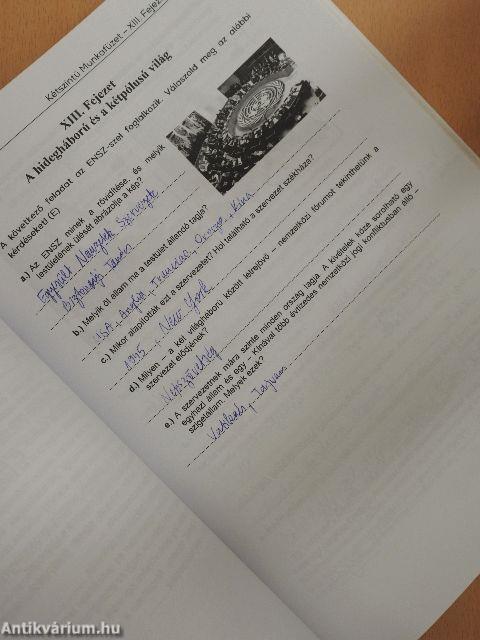 Kétszintű Munkafüzet – XIII. Fejezet
XIII. Fejezet
A hidegháború és a kétpólusú világ
A következő feladat az ENSZ-szel foglalkozik. Válaszold meg az alábbi
kérdéseket! (E)
a.) Az ENSZ minek a rövidítése, és melyik
testületének ülését ábrázolja a kép?
Egyesült Nemzetek Szervezete
Biztonsági Tanács
b.) Melyik öt állam ma a testület állandó tagja?
USA, Anglia, Franciao, Oroszo, Kína
c.) Mikor alapították ezt a szervezetet? Hol található a szervezet székháza?
1945, New York
d.) Milyen – a két világháború között létrejövő – nemzetközi fórumot tekinthetünk a
szervezet elődjének?
Népszövetség
e.) A szervezetnek mára szinte minden ország tagja. A kivételek közé sorolható egy
egyházi állam és egy – Kínával több évtizedes nemzetközi jogi konfliktusban álló –
szigetállam. Melyek ezek?
Vatikán, Tajvan
Antikvárium.hu